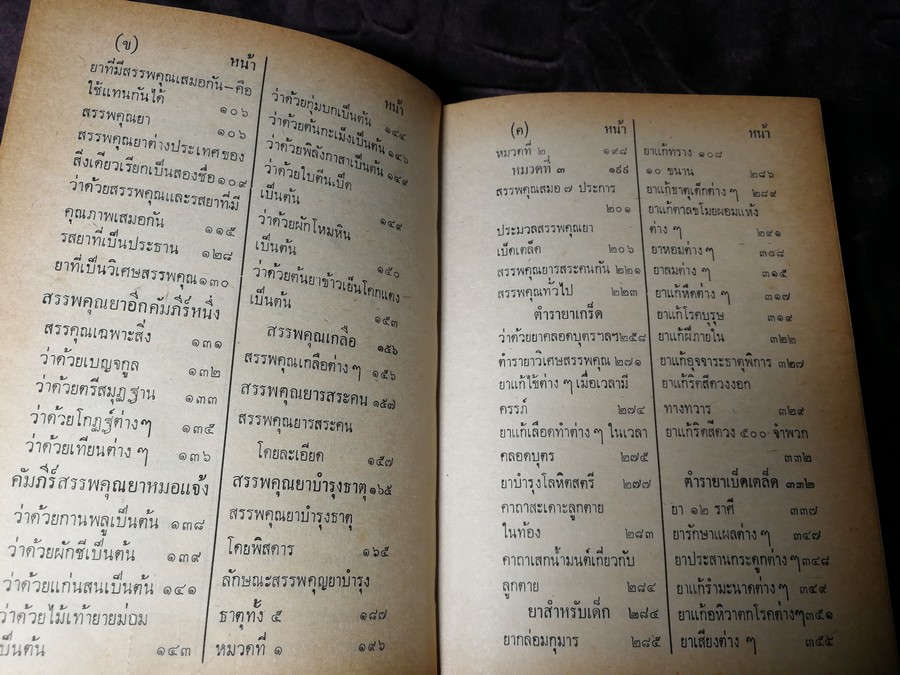 (ข)
หน้า
ยาที่มีสรรพคุณเสมอกัน–คือ
ใช้แทนกันได้ ๑๐๖
สรรพคุณยา ๑๐๖
สรรพคุณยาต่างประเทศของ
สิ่งเดียวเรียกเป็นสองชื่อ ๑๐๙
ว่าด้วยสรรพคุณและรสยาที่มี
คุณภาพเสมอกัน ๑๑๕
รสยาที่เป็นประธาน ๑๒๘
ยาที่เป็นวิเศษสรรพคุณ ๑๓๐
สรรพคุณยาอีกคัมภีร์หนึ่ง
สรรคุณเฉพาะสิ่ง ๑๓๑
ว่าด้วยเบญจกูล ๑๓๒
ว่าด้วยตรีสมุฏฐาน ๑๓๓
ว่าด้วยโกฏฐ์ต่างๆ ๑๓๕
ว่าด้วยเทียนต่าง ๆ ๑๓๖
คัมภีร์สรรพคุณยาหมอแจ้ง
ว่าด้วยกานพลูเป็นต้น ๑๓๘
ว่าด้วยผักชีเป็นต้น ๑๓๙
ว่าด้วยแก่นสนเป็นต้น ๑๔๑
ว่าด้วยไม้เท้ายายม่อม
เป็นต้น ๑๔๓
หน้า
ว่าด้วยกุ่มบกเป็นต้น ๑๔๔
ว่าด้วยต้นกะเม็งเป็นต้น ๑๔๖
ว่าด้วยพิลังกาสาเป็นต้น ๑๔๙
ว่าด้วยใบตีนเป็ด
เป็นต้น ๑๔๙
ว่าด้วยผักโหมหิน
เป็นต้น ๑๕๐
ว่าด้วยต้นยาข้าวเย็นโคกแดง
เป็นต้น ๑๕๓
สรรพคุณเกลือ ๑๕๖
สรรพคุณเกลือต่าง ๆ ๑๕๖
สรรพคุณยารสระคน ๑๕๗
สรรพคุณยารสระคน
โดยละเอียด ๑๕๗
สรรพคุณยาบำรุงธาตุ ๑๖๕
สรรพคุณยาบำรุงธาตุ
โดยพิสดาร ๑๖๕
ลักษณะสรรพคุญยาบำรุง
ธาตุทั้ง ๕ ๑๘๗
หมวดที่ ๑ ๑๙๖
(ค) หน้า
หมวดที่ ๒ ๑๙๘
หมวดที่ ๓ ๑๙๙
สรรพคุณสมอ ๗ ประการ
๒๐๑
ประมวลสรรพคุณยา
เบ็ดเตล็ด ๒๐๖
สรรพคุณยารสระคนกัน ๒๒๑
สรรพคุณทั่วไป ๒๒๓
ตำรายาเกร็ด
ว่าด้วยยาคลอดบุตรฯลฯ ๒๕๘
ตำรายาวิเศษสรรพคุณ ๒๗๑
ยาแก้ไข้ต่าง ๆ เมื่อเวลามี
ครรภ์ ๒๗๔
ยาแก้เลือดทำต่าง ๆ ในเวลา
คลอดบุตร ๒๗๕
ยาบำรุงโลหิตสตรี ๒๗๗
คาถาสะเดาะลูกตาย
ในท้อง ๒๘๓
คาถาเสกน้ำมนต์เกี่ยวกับ
ลูกตาย ๒๘๔
ยาสำหรับเด็ก ๒๘๔
ยากล่อมกุมาร ๒๘๕
หน้า
ยาแก้ทราง ๑๐๘
๑๐ ขนาน ๒๘๖
ยาแก้ธาตุเด็กต่าง ๆ ๒๘๙
ยาแก้ตาลขโมยผอมแห้ง
ต่าง ๆ ๒๙๑
ยาหอมต่าง ๆ ๓๐๘
ยาลมต่าง ๆ ๓๑๕
ยาแก้หืดต่าง ๆ ๓๑๗
ยาแก้โรคบุรุษ ๓๑๙
ยาแก้ฝีภายใน ๓๒๒
ยาแก้อุจจาระธาตุพิการ ๓๒๗
ยาแก้ริดสีดวงงอก
ทางทวาร ๓๒๙
ยาแก้ริดสีดวง ๕๐๐ จำพวก
๓๓๒
ตำรายาเบ็ดเตล็ด ๓๓๒
ยา ๑๒ ราศี ๓๓๗
ยารักษาแผลต่าง ๆ ๓๔๗
ยาประสานกระดูกต่าง ๆ ๓๔๘
ยาแก้รำมะนาดต่าง ๆ ๓๔๙
ยาแก้อหิวาตกโรคต่างๆ ๓๕๑
ยาเสียงต่าง ๆ ๓๕๕